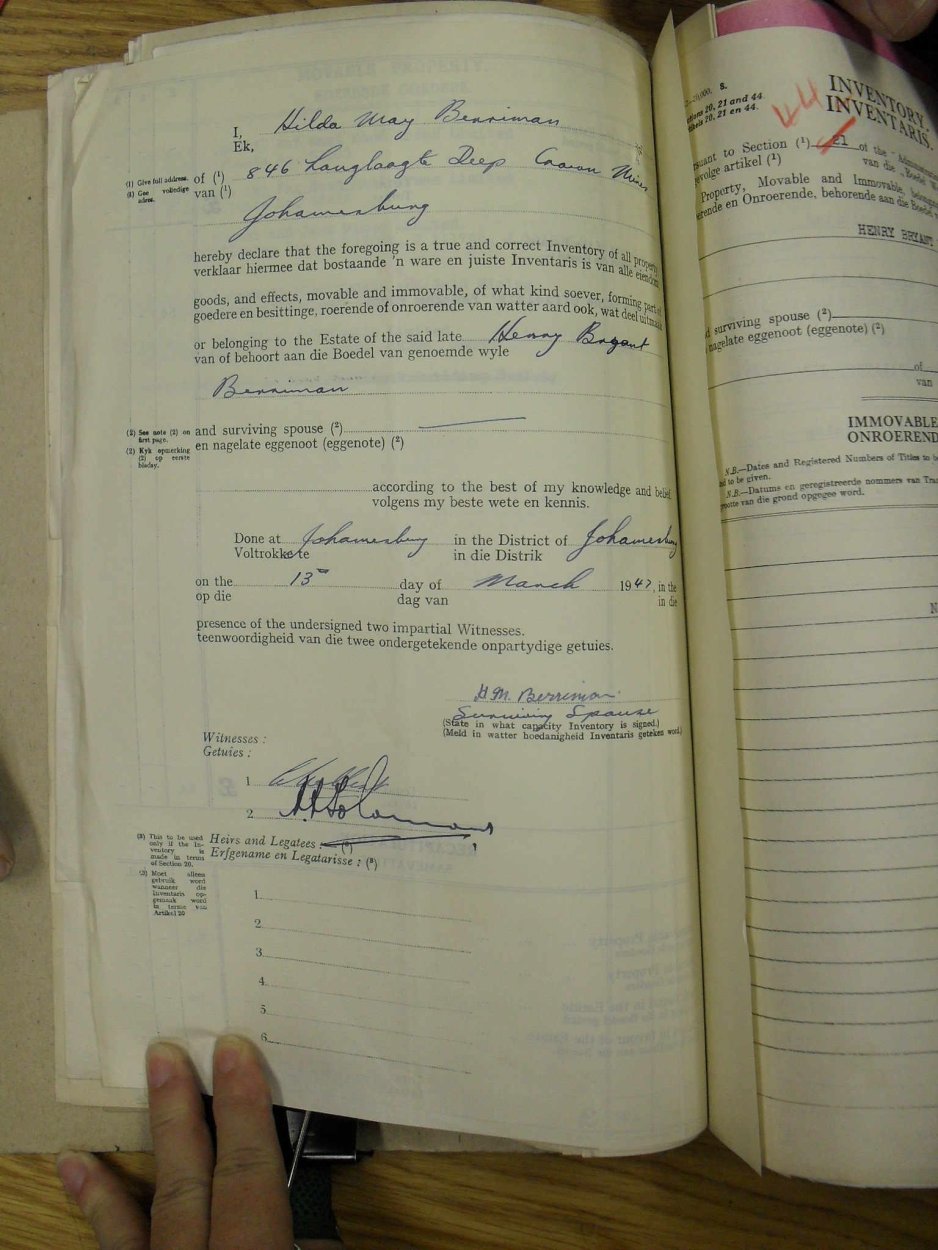 I, Hilda May Berriman
Ek,
(1) Give full address. of (1) 846 Langlaagte Deep Crown Mines
(1) Gee volledige adres. van (1)
Johannesburg
hereby declare that the foregoing is a true and correct Inventory of all property
verklaar hiermee dat bostaande 'n ware en juiste Inventaris is van alle eiendom
goods, and effects, movable and immovable, of what kind soever, forming part of
goedere en besittinge, roerende of onroerende van watter aard ook, wat deel uitmaak
or belonging to the Estate of the said late Henry Bryant
van of behoort aan die Boedel van genoemde wyle
Berriman
(2) See note (2) on first page. and surviving spouse (2)
(2) Kyk opmerking (2) op eerste bladsy. en nagelate eggenoot (eggenote) (2)
according to the best of my knowledge and belief
volgens my beste wete en kennis.
Done at Johannesburg in the District of Johannesburg
Voltrokke te in die Distrik
on the 13th day of March 1947, in the
op die dag van in die
presence of the undersigned two impartial Witnesses.
teenwoordigheid van die twee ondergetekende onpartydige getuies.
H.M. Berriman
Surviving Spouse
(State in what capacity Inventory is signed.)
(Meld in watter hoedanigheid Inventaris geteken word.)
Witnesses :
Getuies :
1
2 Solomon
(3) This to be used only if the Inventory is made in terms of Section 20.
Heirs and Legatees : (3)
Erfgename en Legatarisse : (3)
(3) Moet alleen gebruik word wanneer die Inventaris opgemaak word in terme van Artikel 20
1
2
3
4
5
6
INVENTORY
INVENTARIS
20, 21 and 44.
20, 21 en 44.
to Section (1) 21 of the
artikel (1) van die Boedel
Property, Movable and Immovable,
en Onroerende, behorende aan die Boedel
HENRY BRYANT
surviving spouse (2)
nagelate eggenoot (eggenote) (2)
of
van
IMMOVABLE
ONROEREND
N.B.—Dates and Registered Numbers of Titles to be
to be given.
N.B.—Datums en geregistreerde nommers van
van die grond opgegee word.